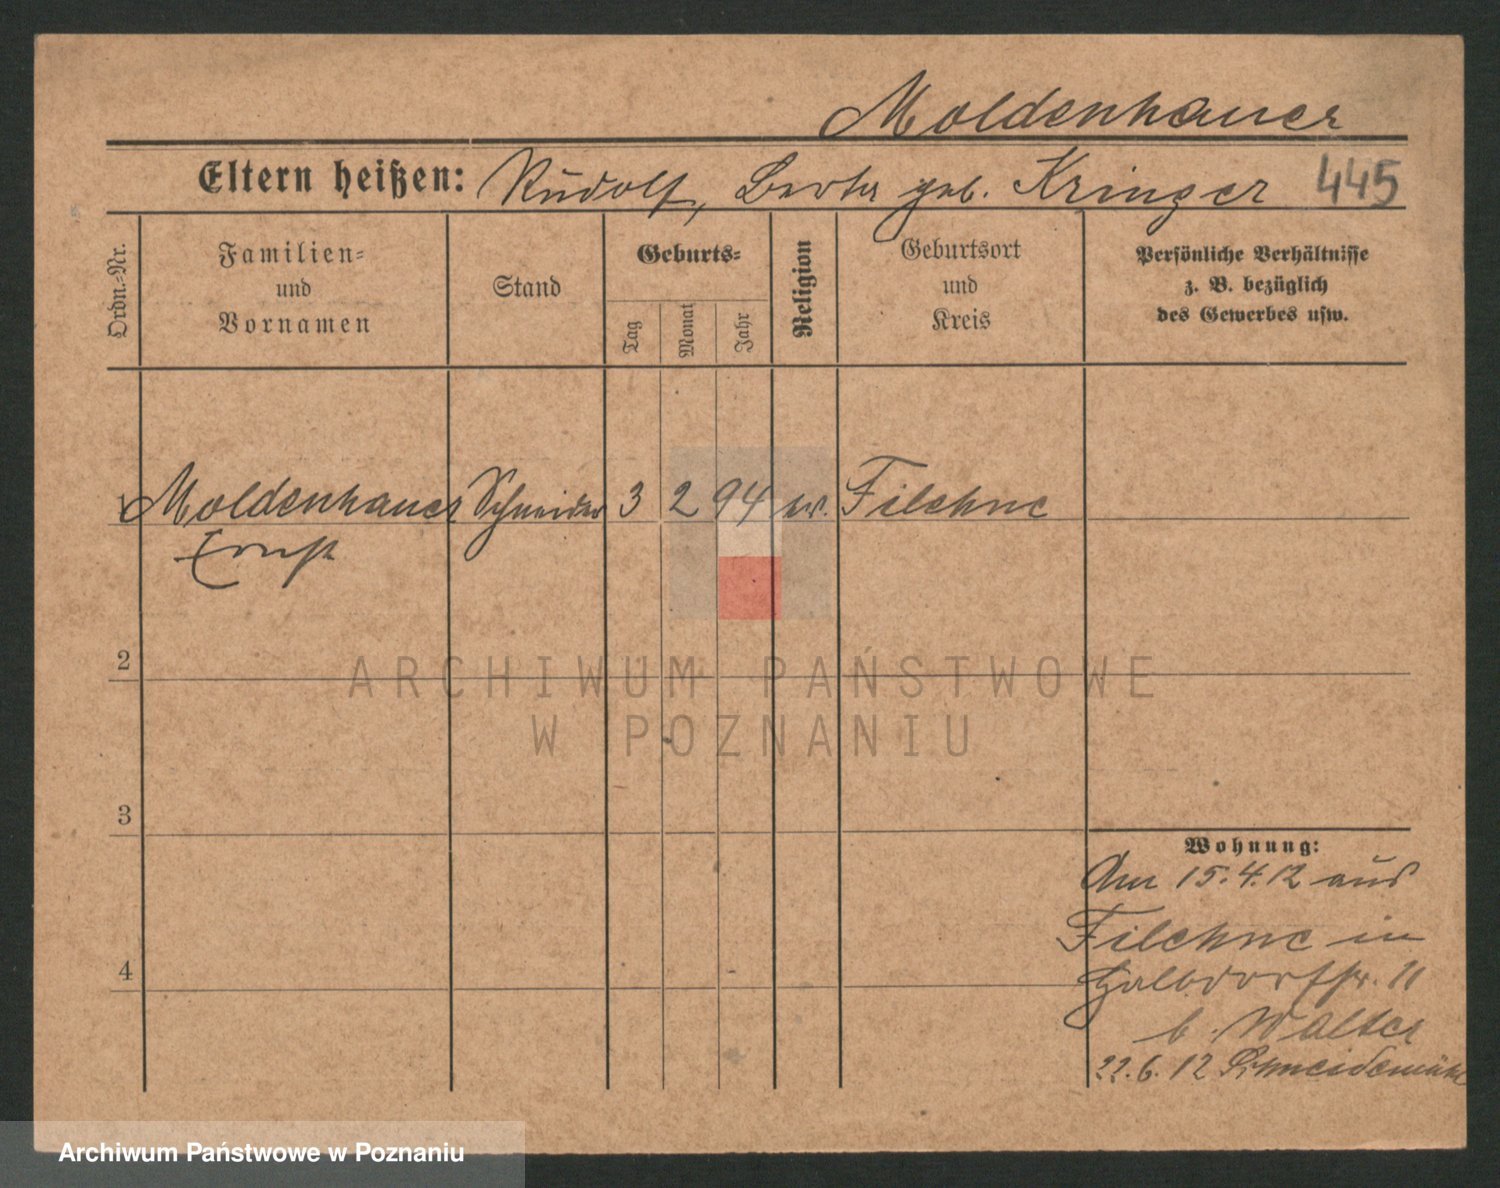 Moldenhauer
Eltern heißen: Rudolf, Berta geb. Kringer 445
Ordn.-Nr.
Familien-
und
Vornamen
Stand
Geburts-
Tag
Monat
Jahr
Religion
Geburtsort
und
Kreis
Persönliche Verhältnisse
z. B. bezüglich
des Gewerbes usw.
1 Moldenhauer Schneider 3 2 94 ev. Filehne
Ernst
2
3
4
Wohnung:
Am 15.4.12 aus
Filehne in
Halbdorfstr. 11
b. Walter
22.6.12 Schneidemühl
ARCHIWUM PAŃSTWOWE
W POZNANIU
Archiwum Państwowe w Poznaniu